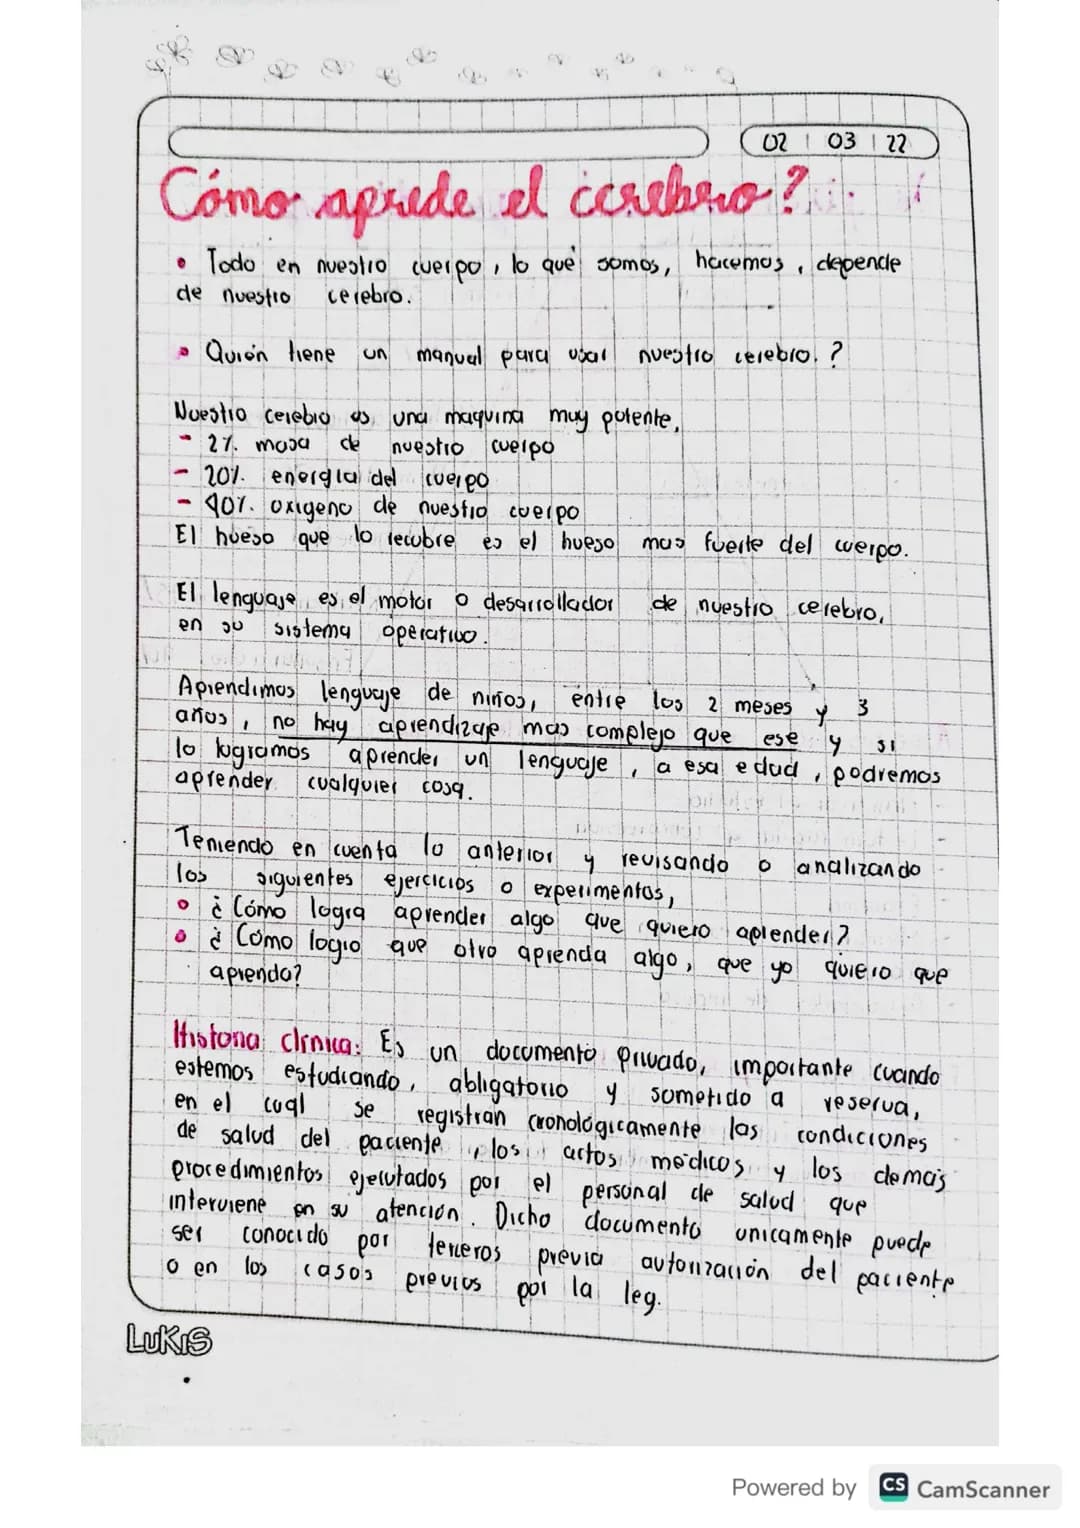 02 | 03 | 22
Cómo aprede el cerebro?
• Todo en nuestro cuerpo, lo que somos, hacemos, depende
de nuestro cerebro.
• Quién tiene un manual para usar nuestro cerebro. ?
Nuestro cerebro es una maquina muy potente,
- 2% masa de nuestro cuerpo
- 20% energía del cuerpo
- 40% oxigeno de nuestro cuerpo
El hueso que lo recubre es el hueso mas fuerte del cuerpo.
El lenguaje es el motor o desarrollador de nuestro cerebro,
en su sistema operativo.
Aprendimos lenguaje de niños, entre los 2 meses y 3
años, no hay aprendizaje mas complejo que ese y si
lo logramos aprender un lenguaje, a esa edad, podremos
aprender cualquier cosa.
Teniendo en cuenta lo anterior y revisando o analizando
los siguientes ejercicios o experimentos,
• ¿Cómo logra aprender algo que quiero aprender?
• ¿Cómo logro que otro aprenda algo, que yo quiero que
aprenda?
Historia clínica: Es un documento privado, importante cuando
estemos estudiando, abligatorio y sometido a reserva,
en el cual se registran cronológicamente las condiciones
de salud del paciente, los actos médicos y los demás
procedimientos ejecutados por el personal de salud que
interviene en su atención. Dicho documento unicamente puede
ser conocido por terceros previa autorización del paciente
o en los casos previos por la leg.
LUKIS
Powered by CS CamScanner